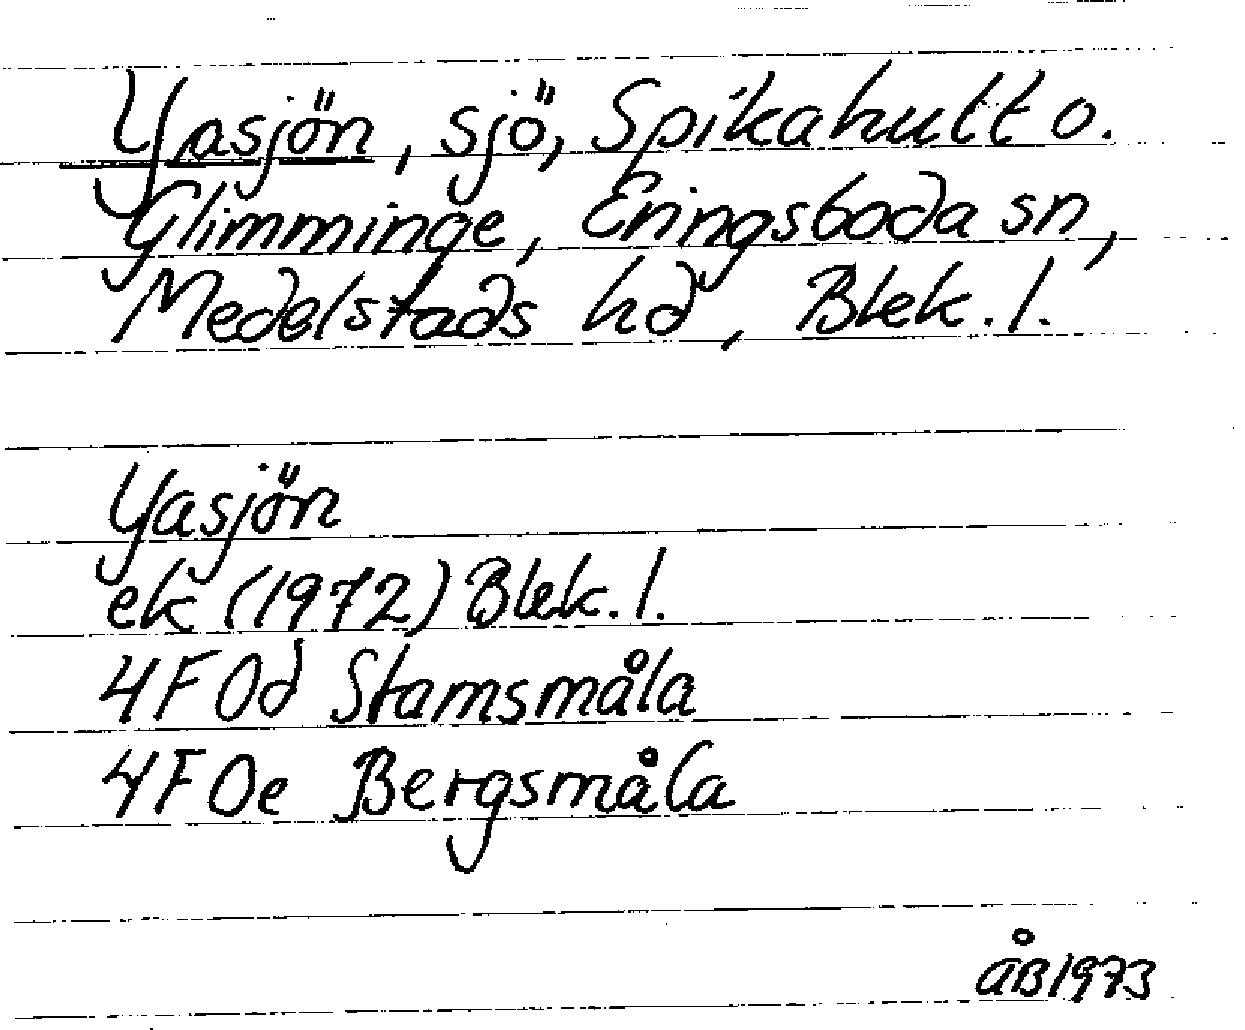 Yasjön, sjö, Spikahult o.
Glimminge, Eringsboda sn,
Medelstads hd, Blek. l.
Yasjön
ek (1972) Blek. l.
4F 0d Stamsmåla
4F 0e Bergsmåla
ÅB 1973